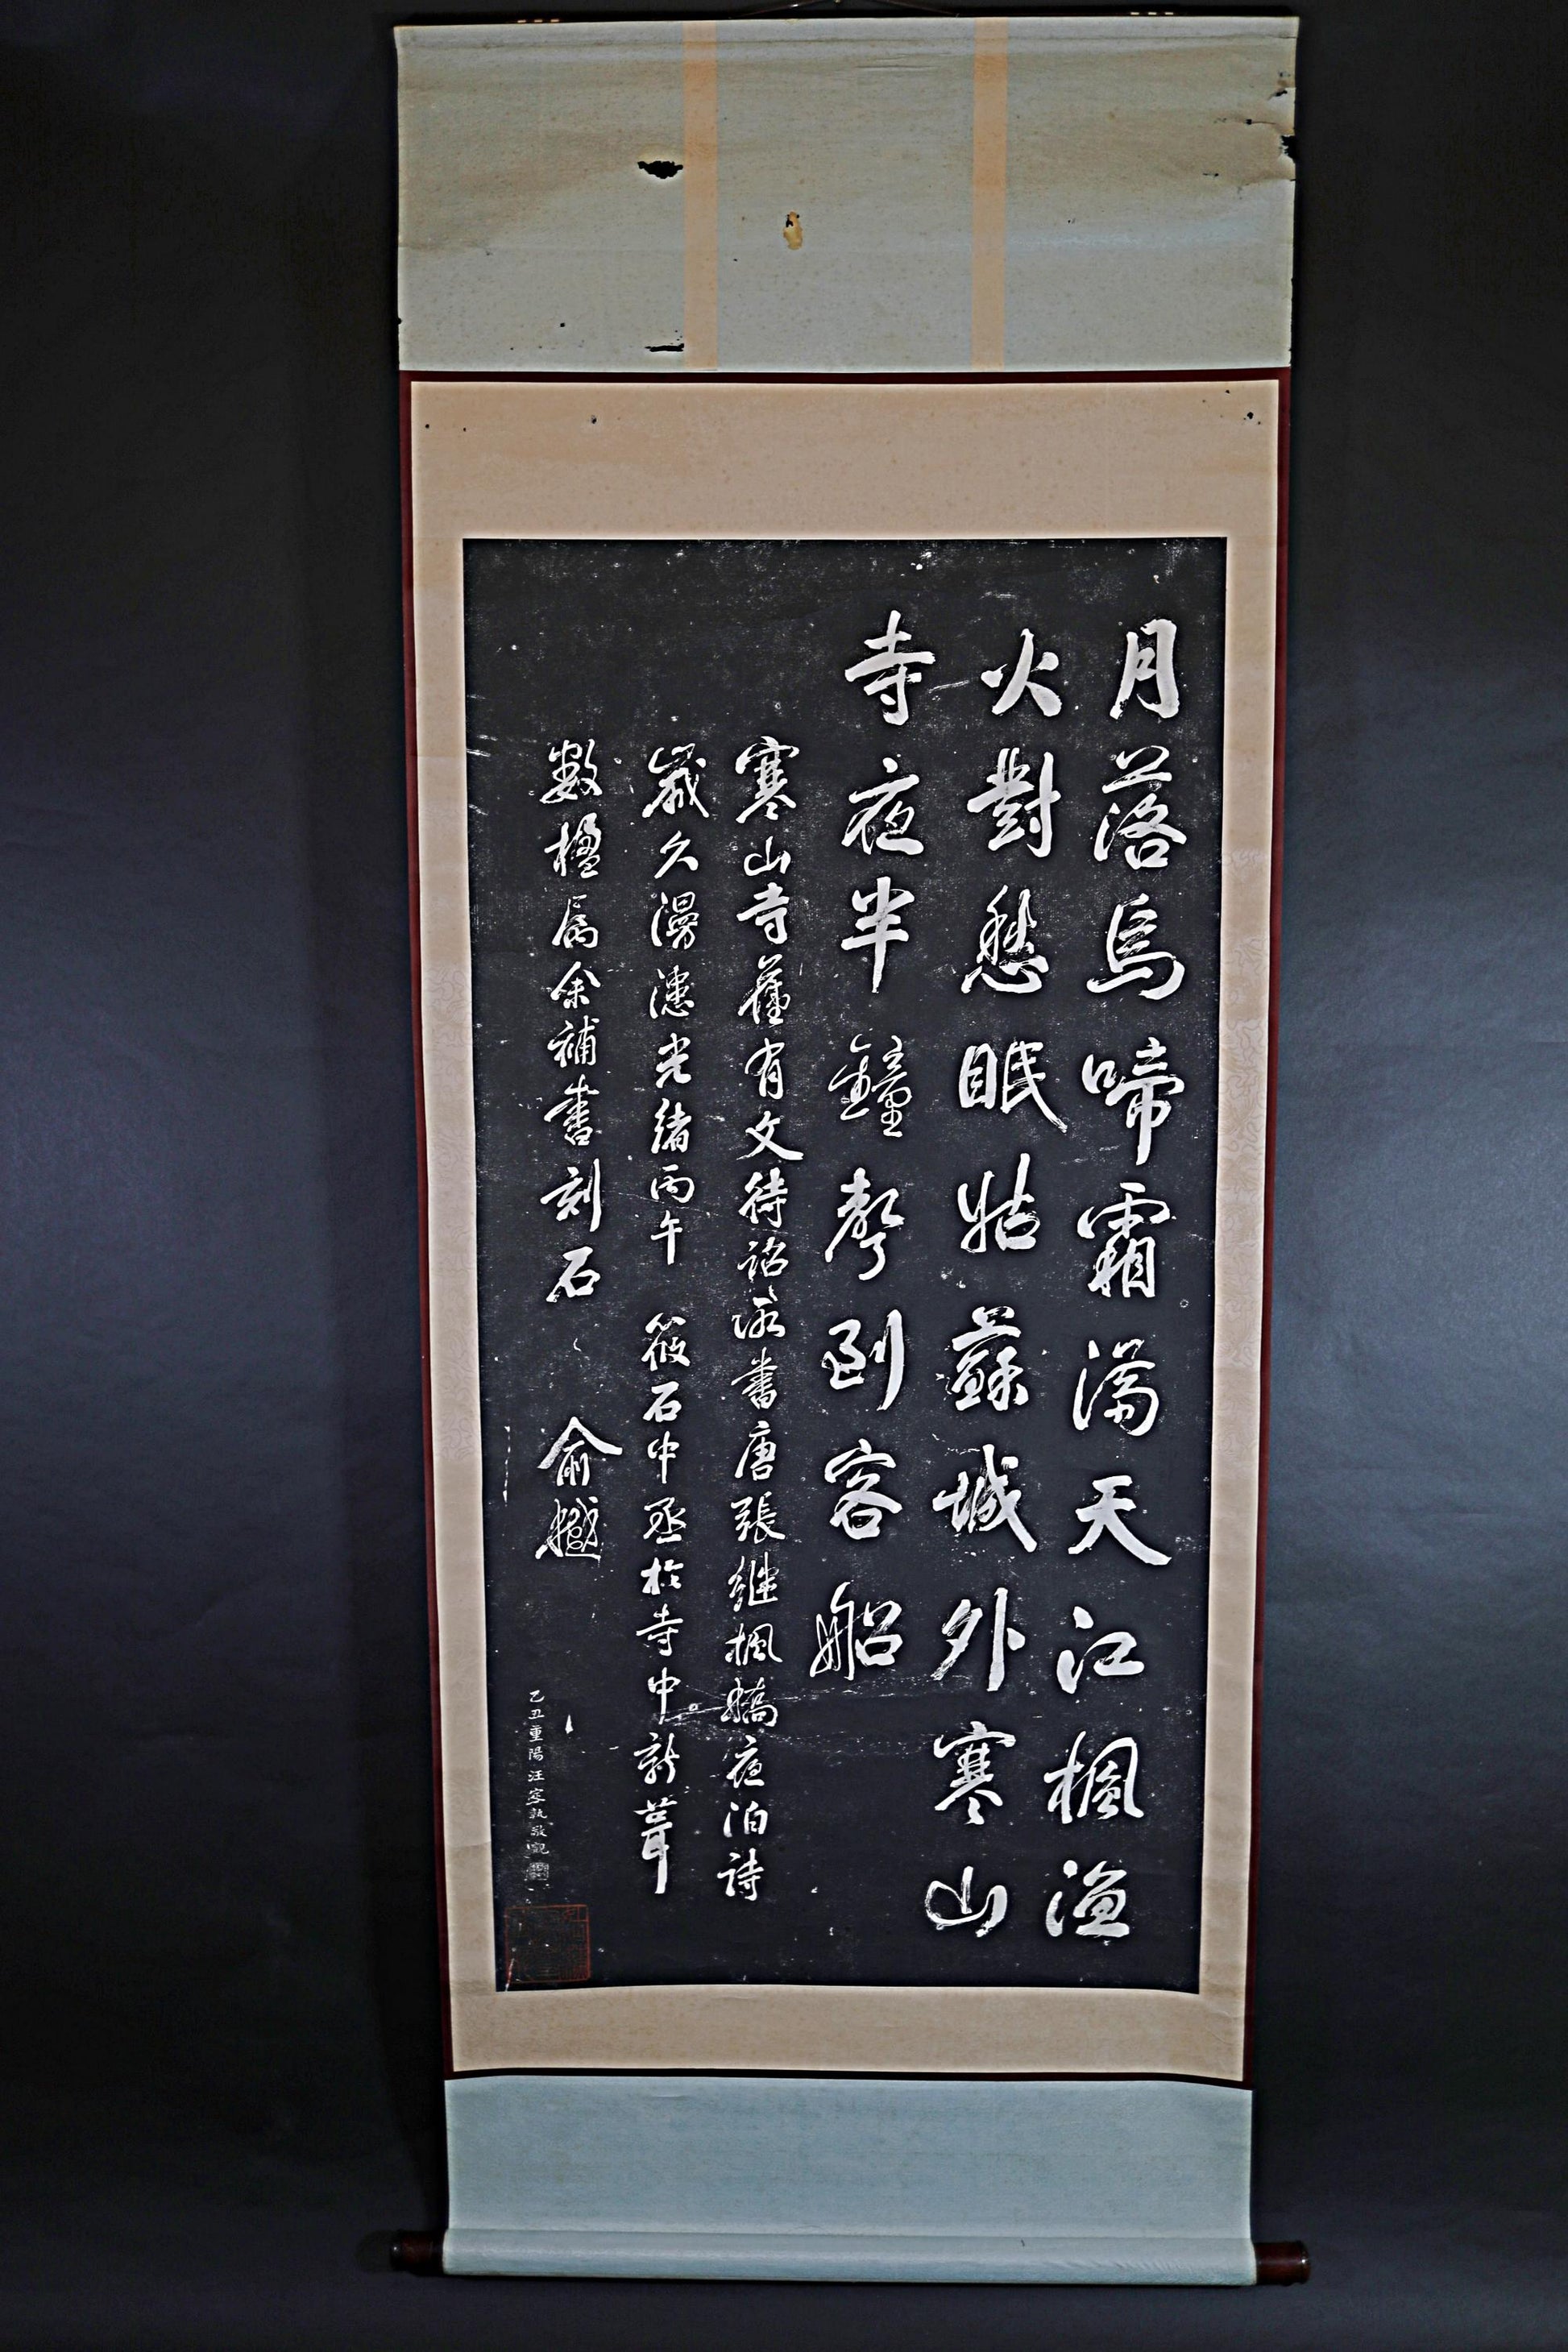 月落烏啼霜滿天江楓漁
火對愁眠姑蘇城外寒山
寺夜半鐘聲到客船
寒山寺舊有文待詔所書唐張継楓橋夜泊詩
歲久漫漶光緒丙午筱石中丞於寺中新葺
數楹属余補書刻石
俞樾
乙丑重陽汪容孰敬觀